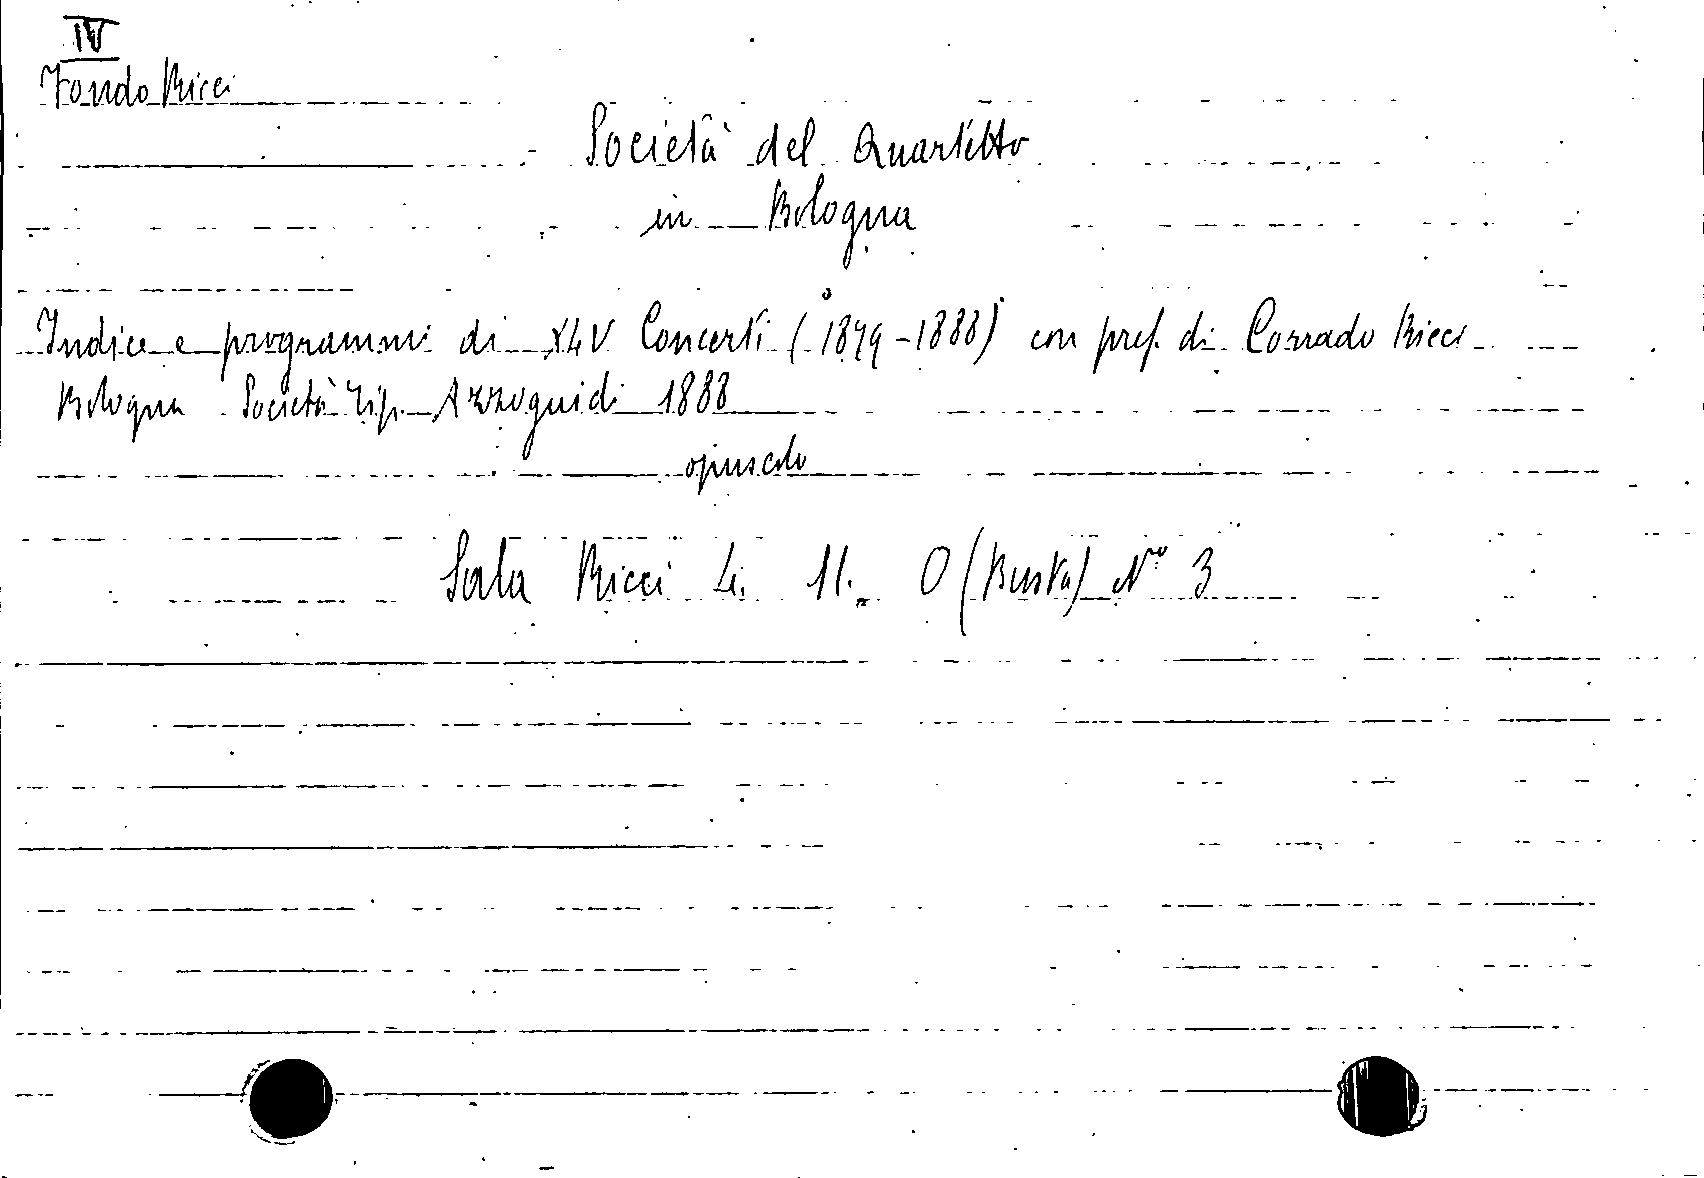 IV
Fondo Ricci
Società del Quartetto
in Bologna
Indice e programmi di XLV Concerti (1879-1888) con pref. di Corrado Ricci
Bologna Società Tip. Azzoguidi 1888
opuscolo
Sala Ricci Li. 11. O (Busta) N° 3